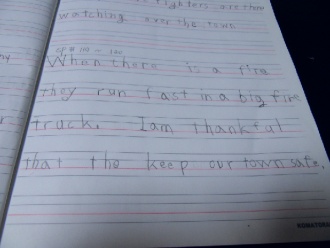 fighters are there
watching over the town
When there is a fire
they run fast in a big fire
truck. I am thankful
that the keep our town safe.